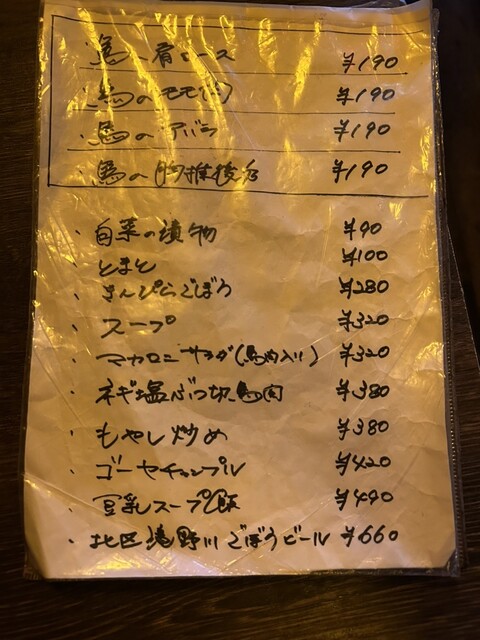 馬の肩ロース ¥190
馬のモモ肉 ¥190
馬のアバラ ¥190
馬の胸椎後 ¥190
・白菜の漬物 ¥90
・とまと ¥100
・きんぴらごぼう ¥280
・スープ ¥320
・マカロニサラダ(馬肉入り) ¥320
・ネギ塩ぶつ切馬肉 ¥380
・もやし炒め ¥380
・ゴーヤチャンプル ¥420
・豆乳スープ飯 ¥490
・北区滝野川ごぼうビール ¥660